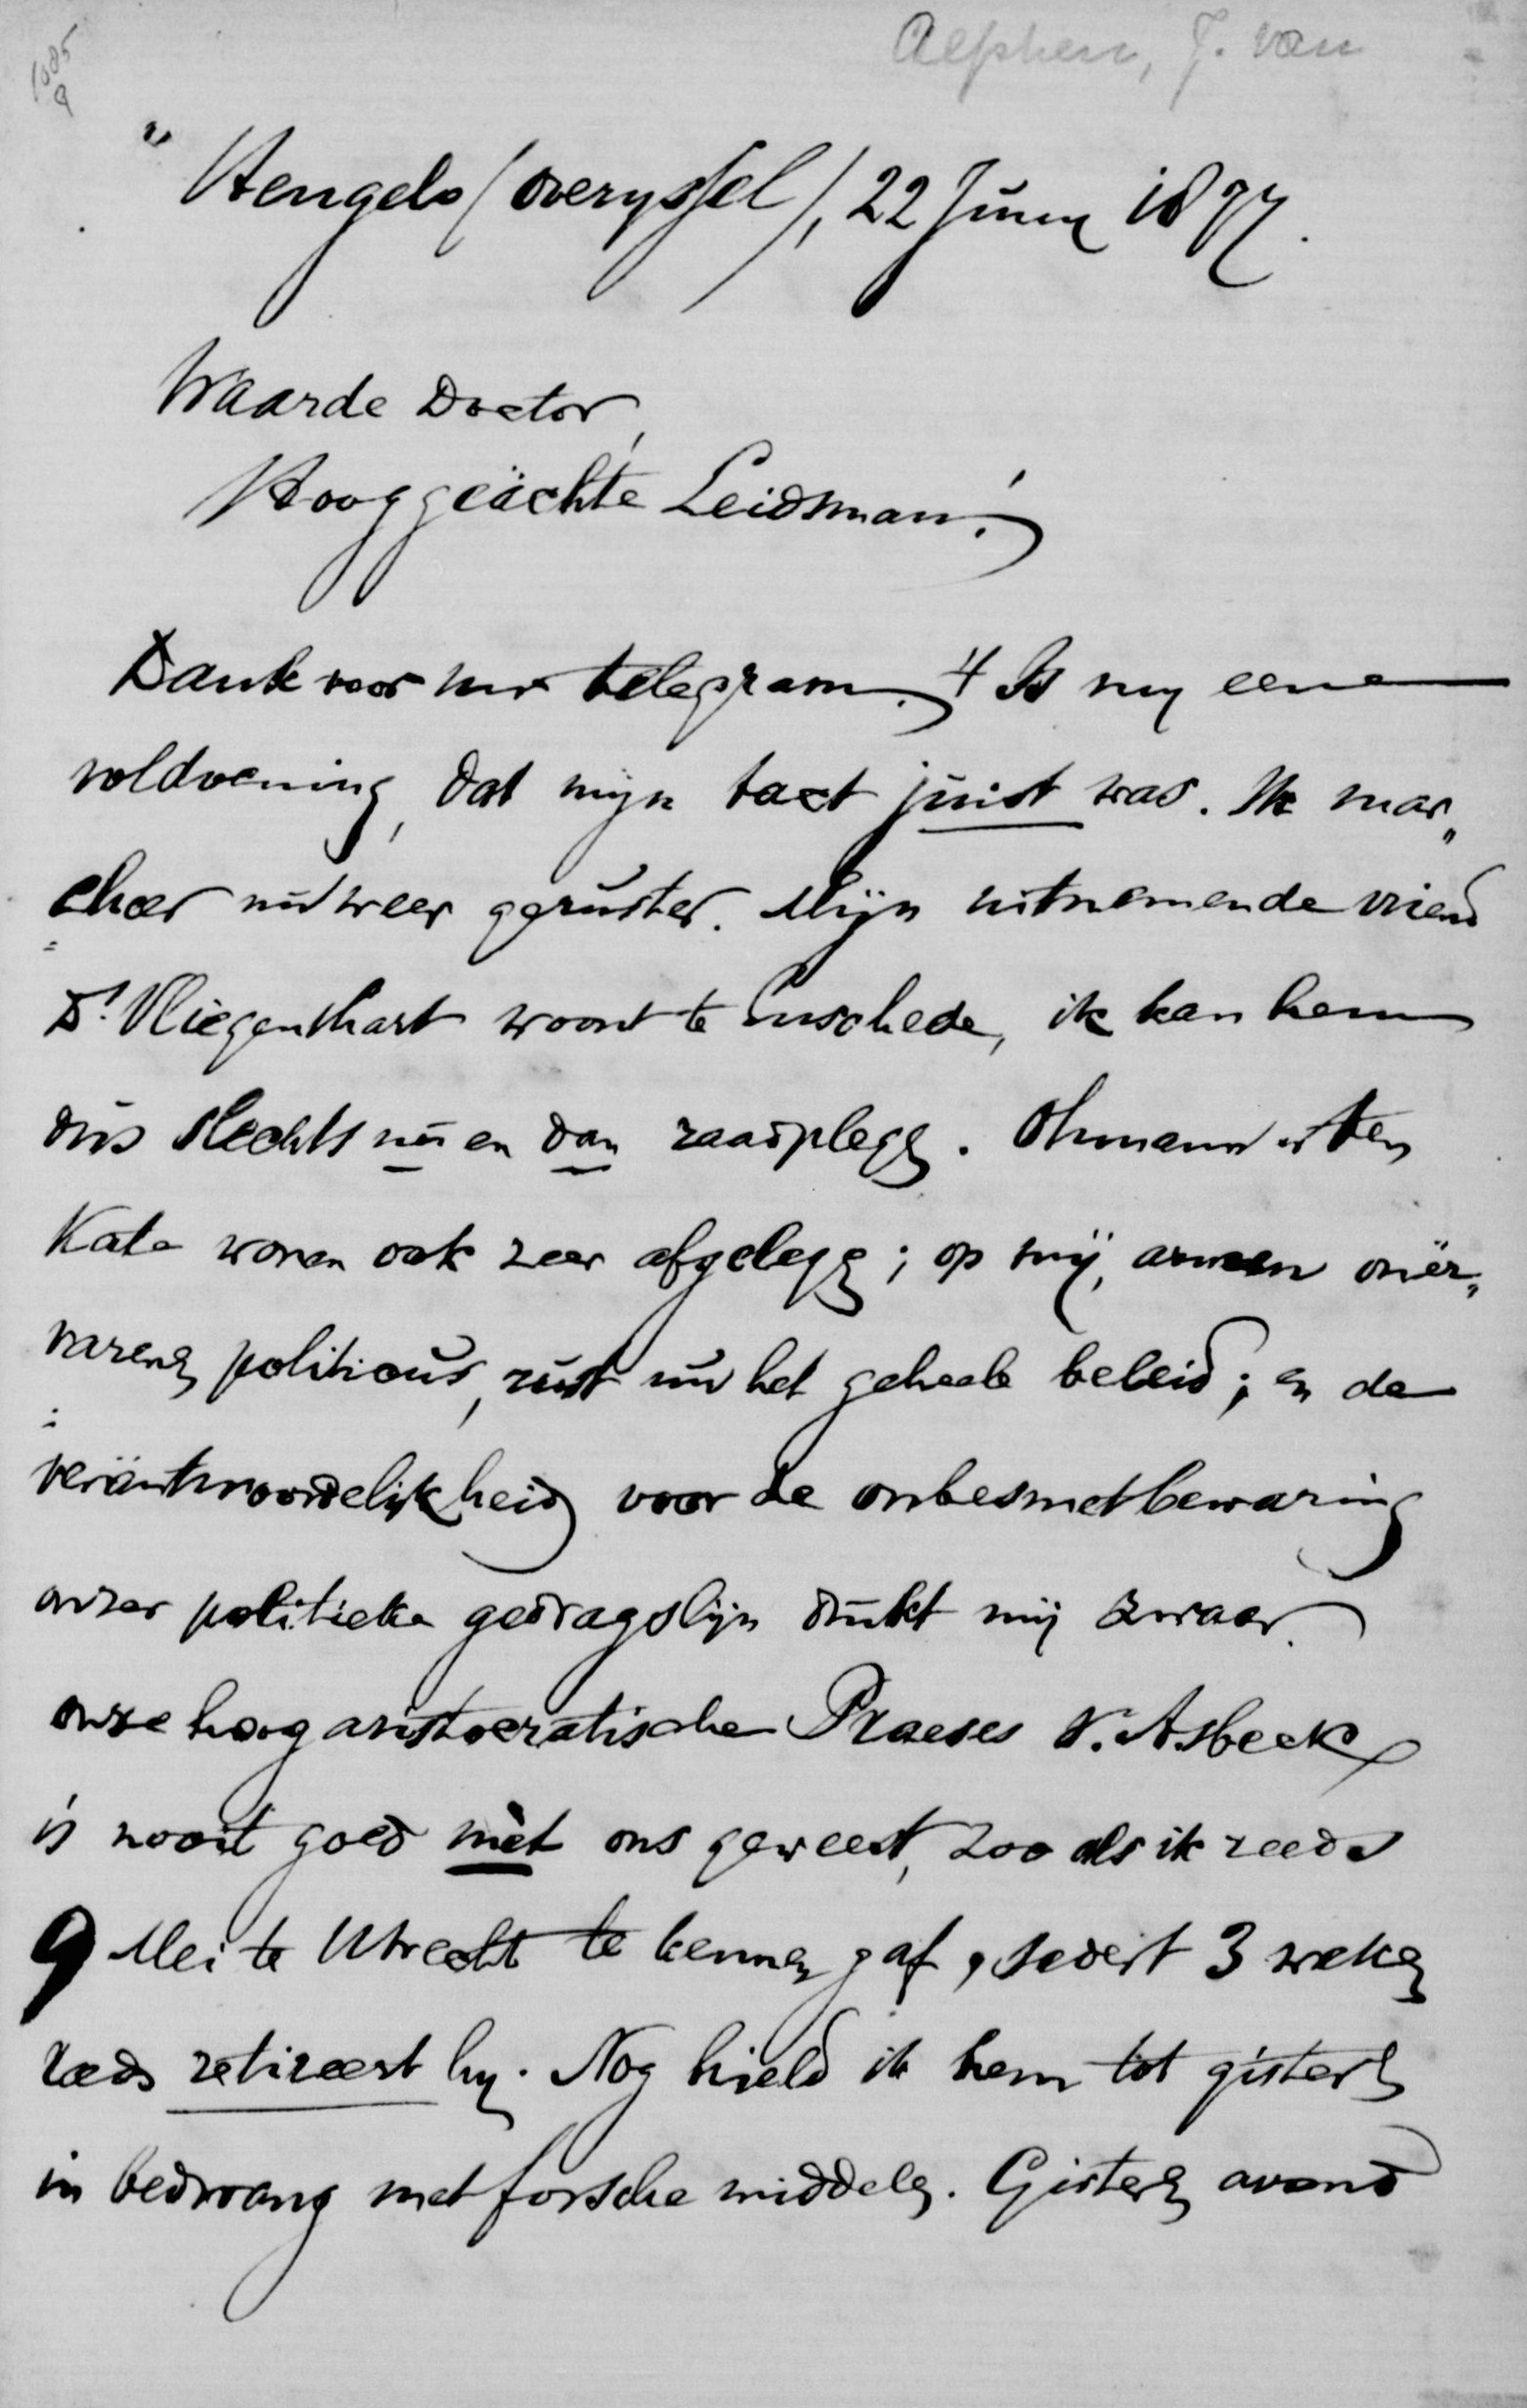 Alphen, J. van
" Hengelo (Overyssel), 22 Juny 1897.
Waarde Doctor,
Hooggeächte Leidsman!
Dank voor uw telegram. 't Is my eene
voldoening, dat mijn tact juist was. Ik mar„
cheer nu weer geruster. Mijn uitnemende vriend
Dr. Vliegenthart woont te Enschede, ik kan hem
dus slechts nu en dan raadplegen. Ohmann & ten
Kate wonen ook zeer afgelegen; op mij, armen onër„
varenen politicus, rust nu het geheele beleid; en de
veräntwoordelijkheid voor de onbesmetbewaring
onzer politieke gedragslijn drukt mij zwaar.
onze hoog aristocratische Praeses v. Asbeck
is nooit goed mèt ons geweest, zoo als ik reeds
9 Mei te Utrecht te kennen gaf, sedert 3 weken
reeds retireert hy. Nog hield ik hem tot gisteren
in bedwang met forsche middelen. Gisteren avond